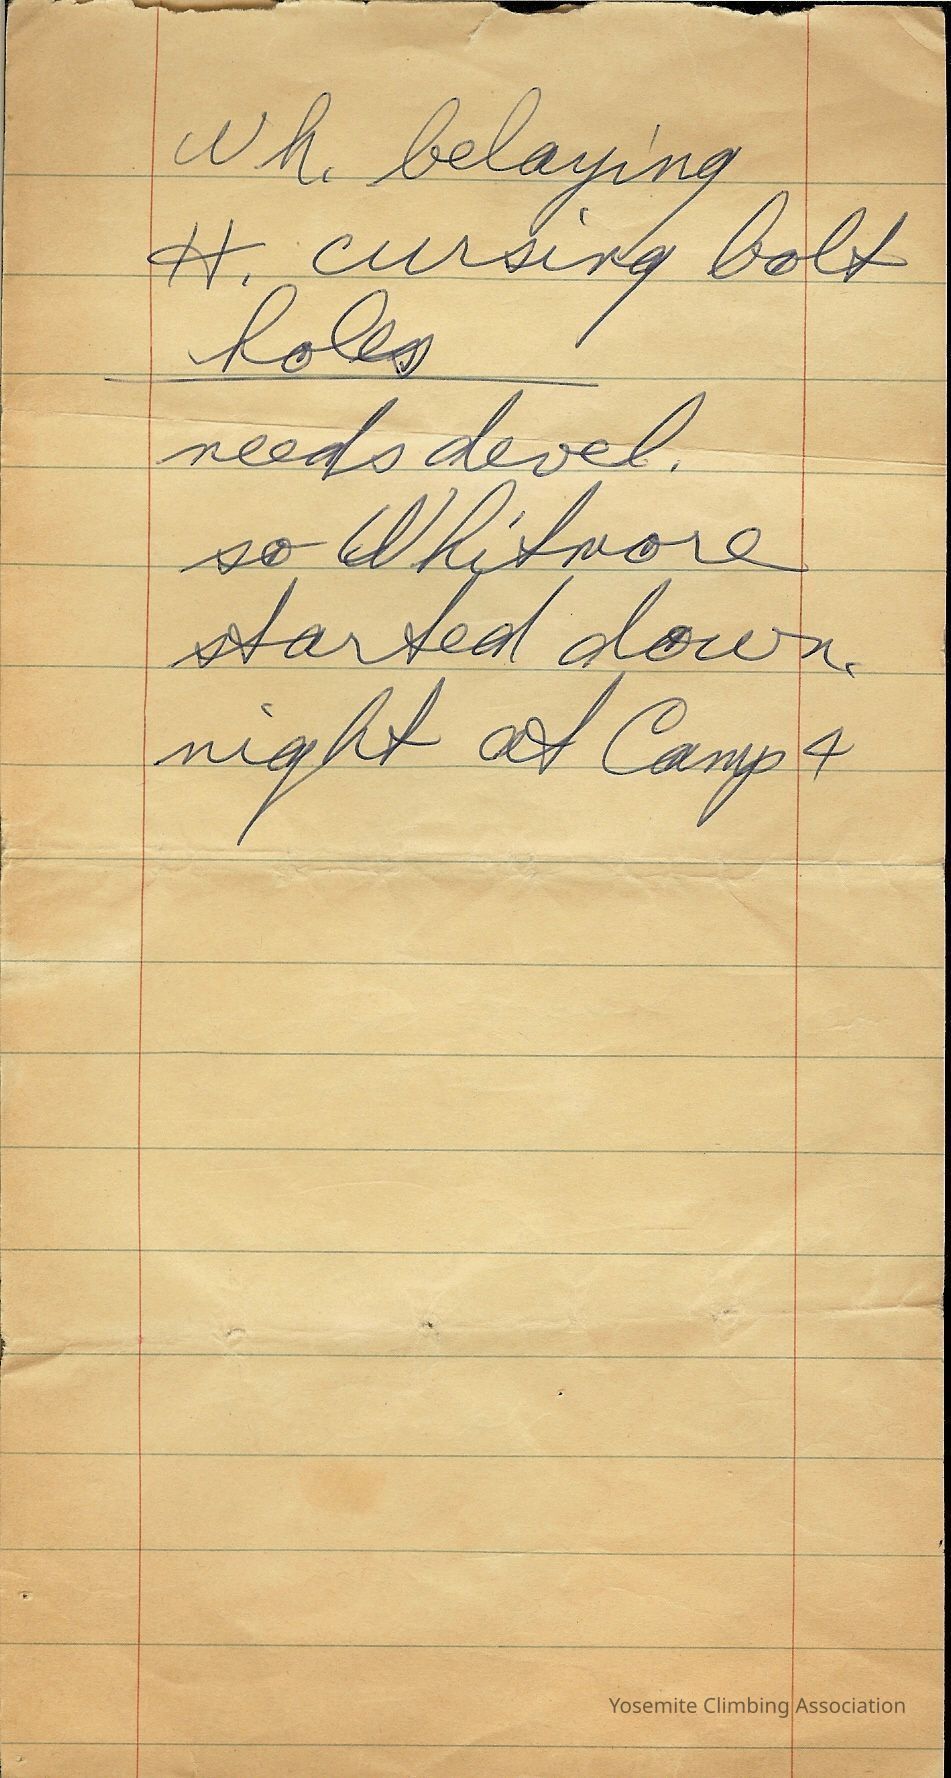 Wh. belaying
H. cursing bolt
holes
needs devel.
so Whitmore
started down.
night at Camp 4
Yosemite Climbing Association